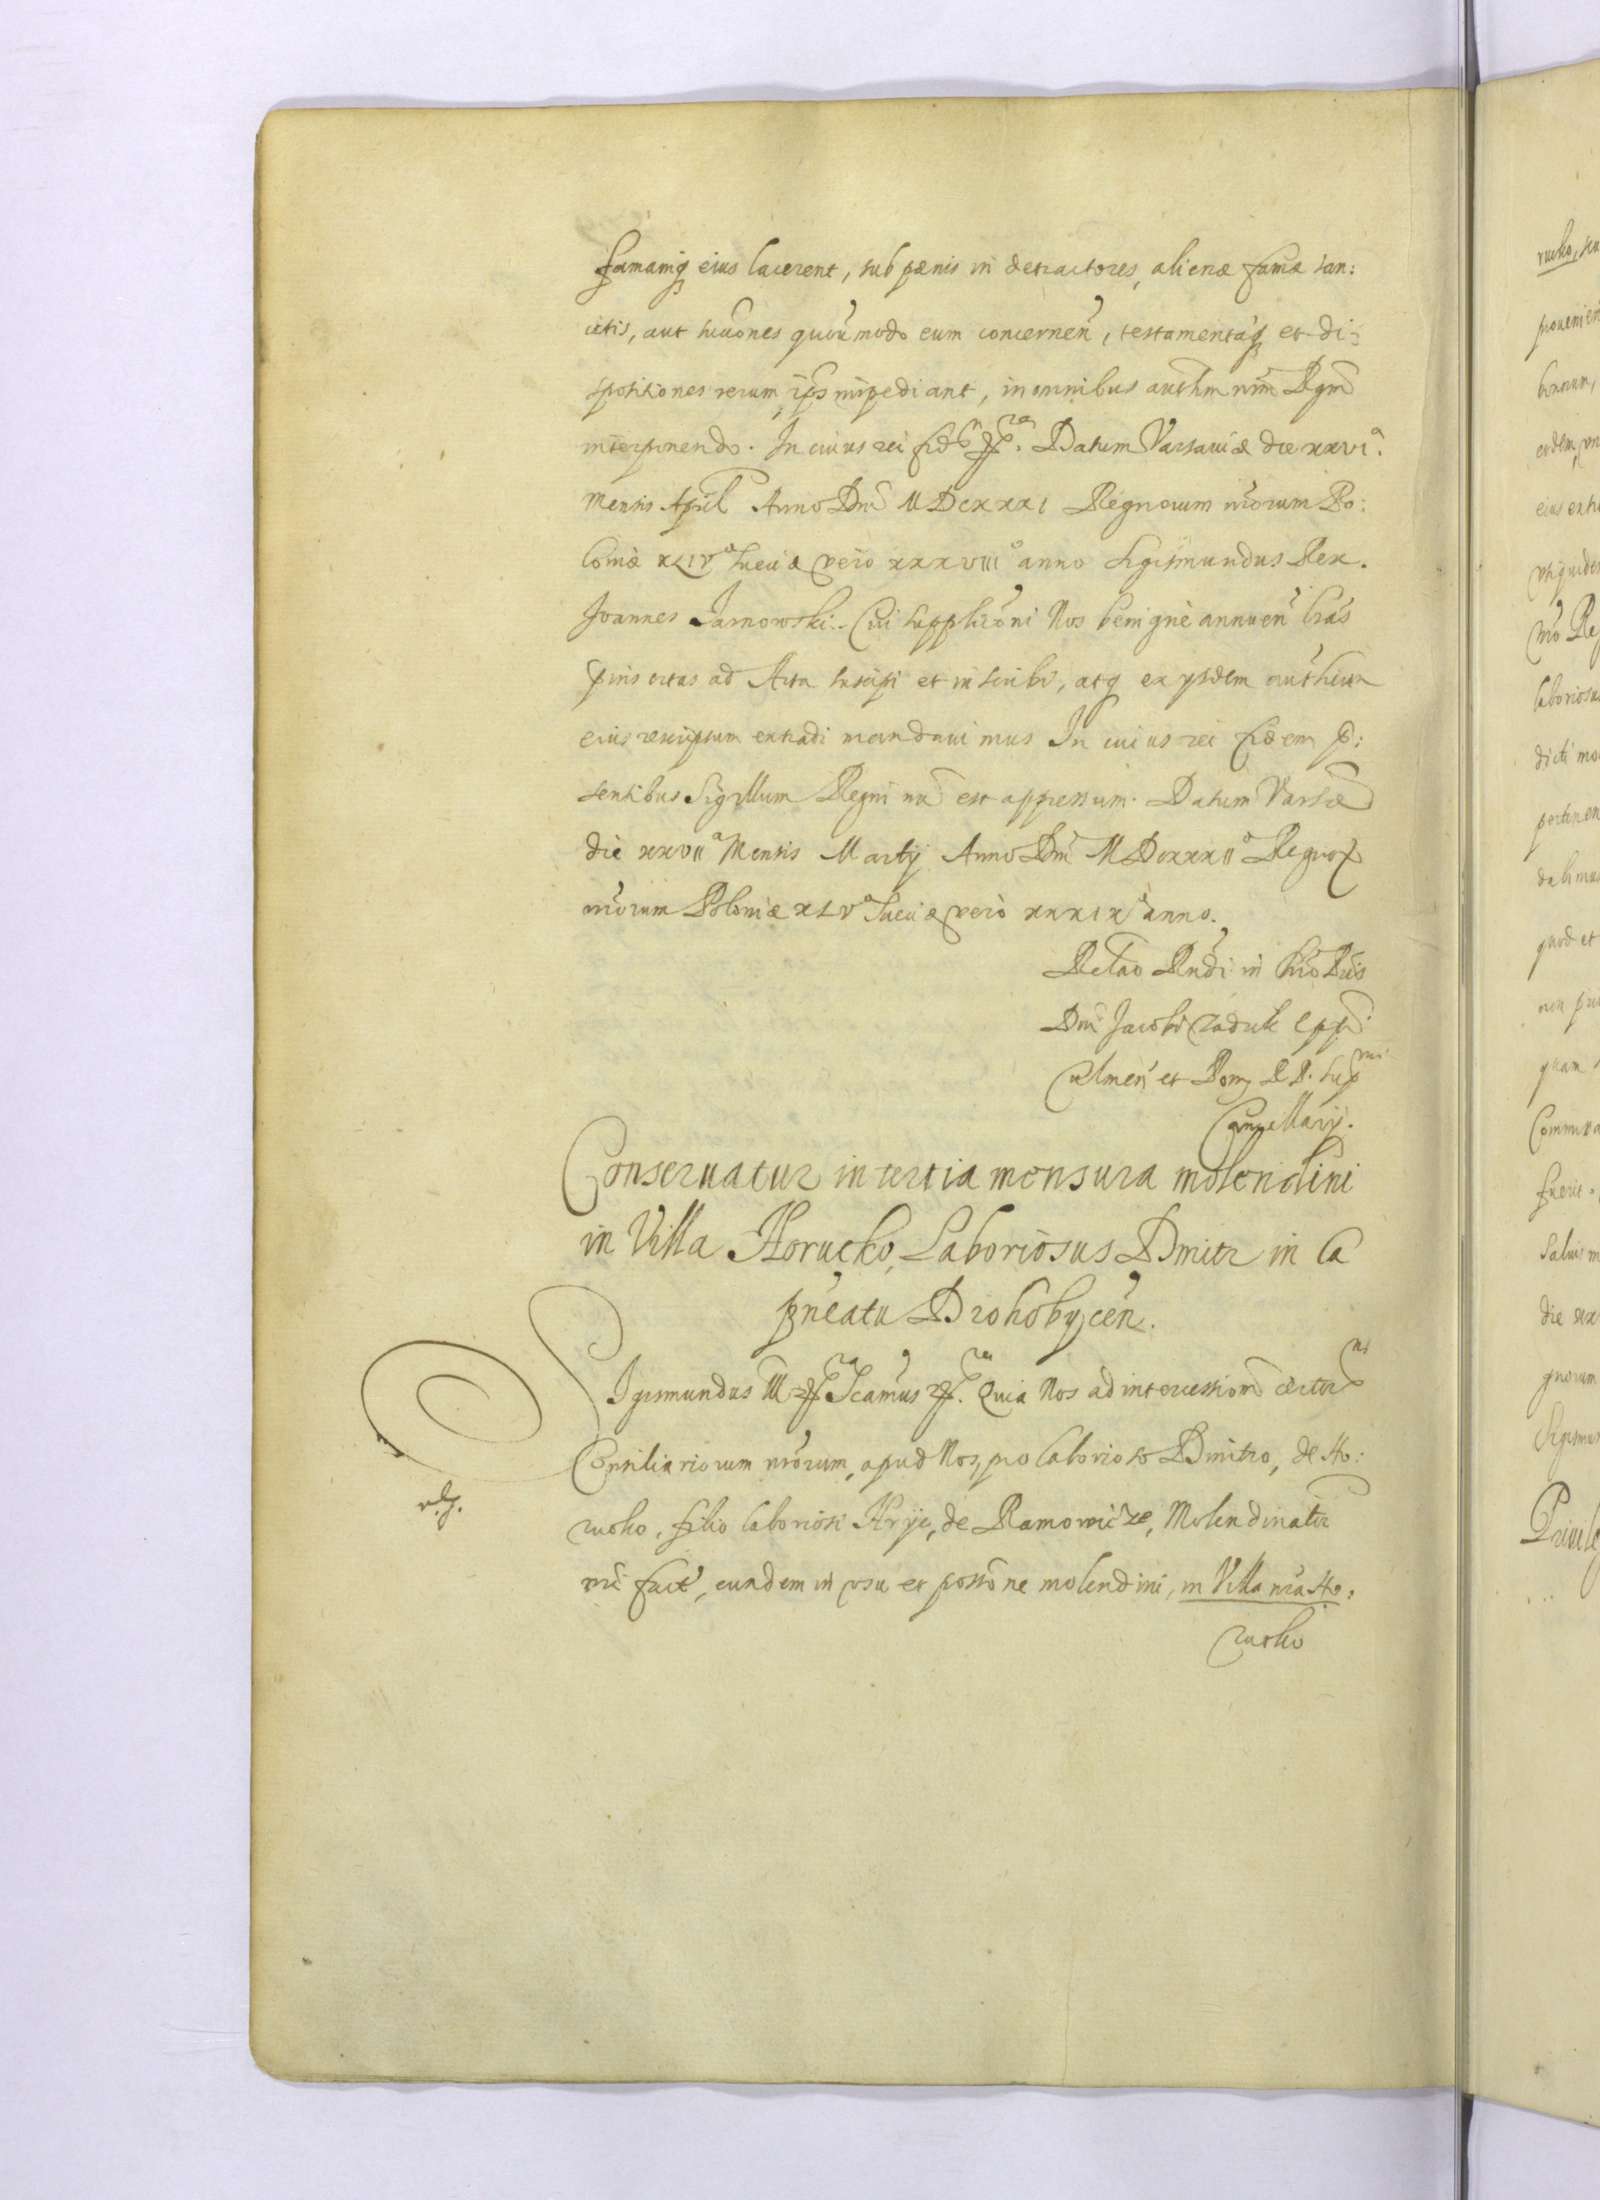 famamq́ eius lacerent, sub pænis in detractores, alienæ famæ san:
citis, aut succones quoũmodo eum concernen̄, testamentaq́ et di:
spositiones rerum ips impediant, in omnibus auctħm nr̃m Rgm̃
interponendo. In cuius rei fid. Datum Varsauiæ die xxvi.ª
Mensis April Anno Dnĩ MDCXXXI Regnorum nr̃orum Po:
loniæ XLIVº Sueciæ vero XXXVIIIº anno Sigismundus Rex.
Joannes Tarnowski. Cui supplicõni Nos benignè annuen̄ lr̃as
pinsertas ad Acta suscipi et inscribi, atq́ ex ysdem authen
eius rescriptum extradi mandauimus In cuius rei fidem p̃:
sentibus Sigillum Regni nr̃ est appressum. Datum Varsæ
die xxviiª Mensis Martij Anno Dnĩ MDCXXXIIº Regnor
nr̃orum Poloniæ XLVº Sueciæ vero XXXIXº anno.
Relaõ Rñdi in Chr̃o Pr̃is
Dnĩ Jacobi Zadzik Epp̃i
Culmen̄ et Pom, R P. Sup
Cancellarij.
Conseruatur in tertia mensura molendini
in Villa Horucko, Laboriosus Dmitr in Ca
pñeatu Drohobycen̄.
Sigismundus III Scamus. Quia Nos ad intercessionẽ certor
Consiliariorum nr̃orum, apud Nos, pro laborioso Dmitro, de Ho:
rucko, filio laboriosi Hryc, de Ramowicze, Molendinator
nr̃i fact, eundem in usu et possõne molendini, in Villa nr̃a Ho:
rucko